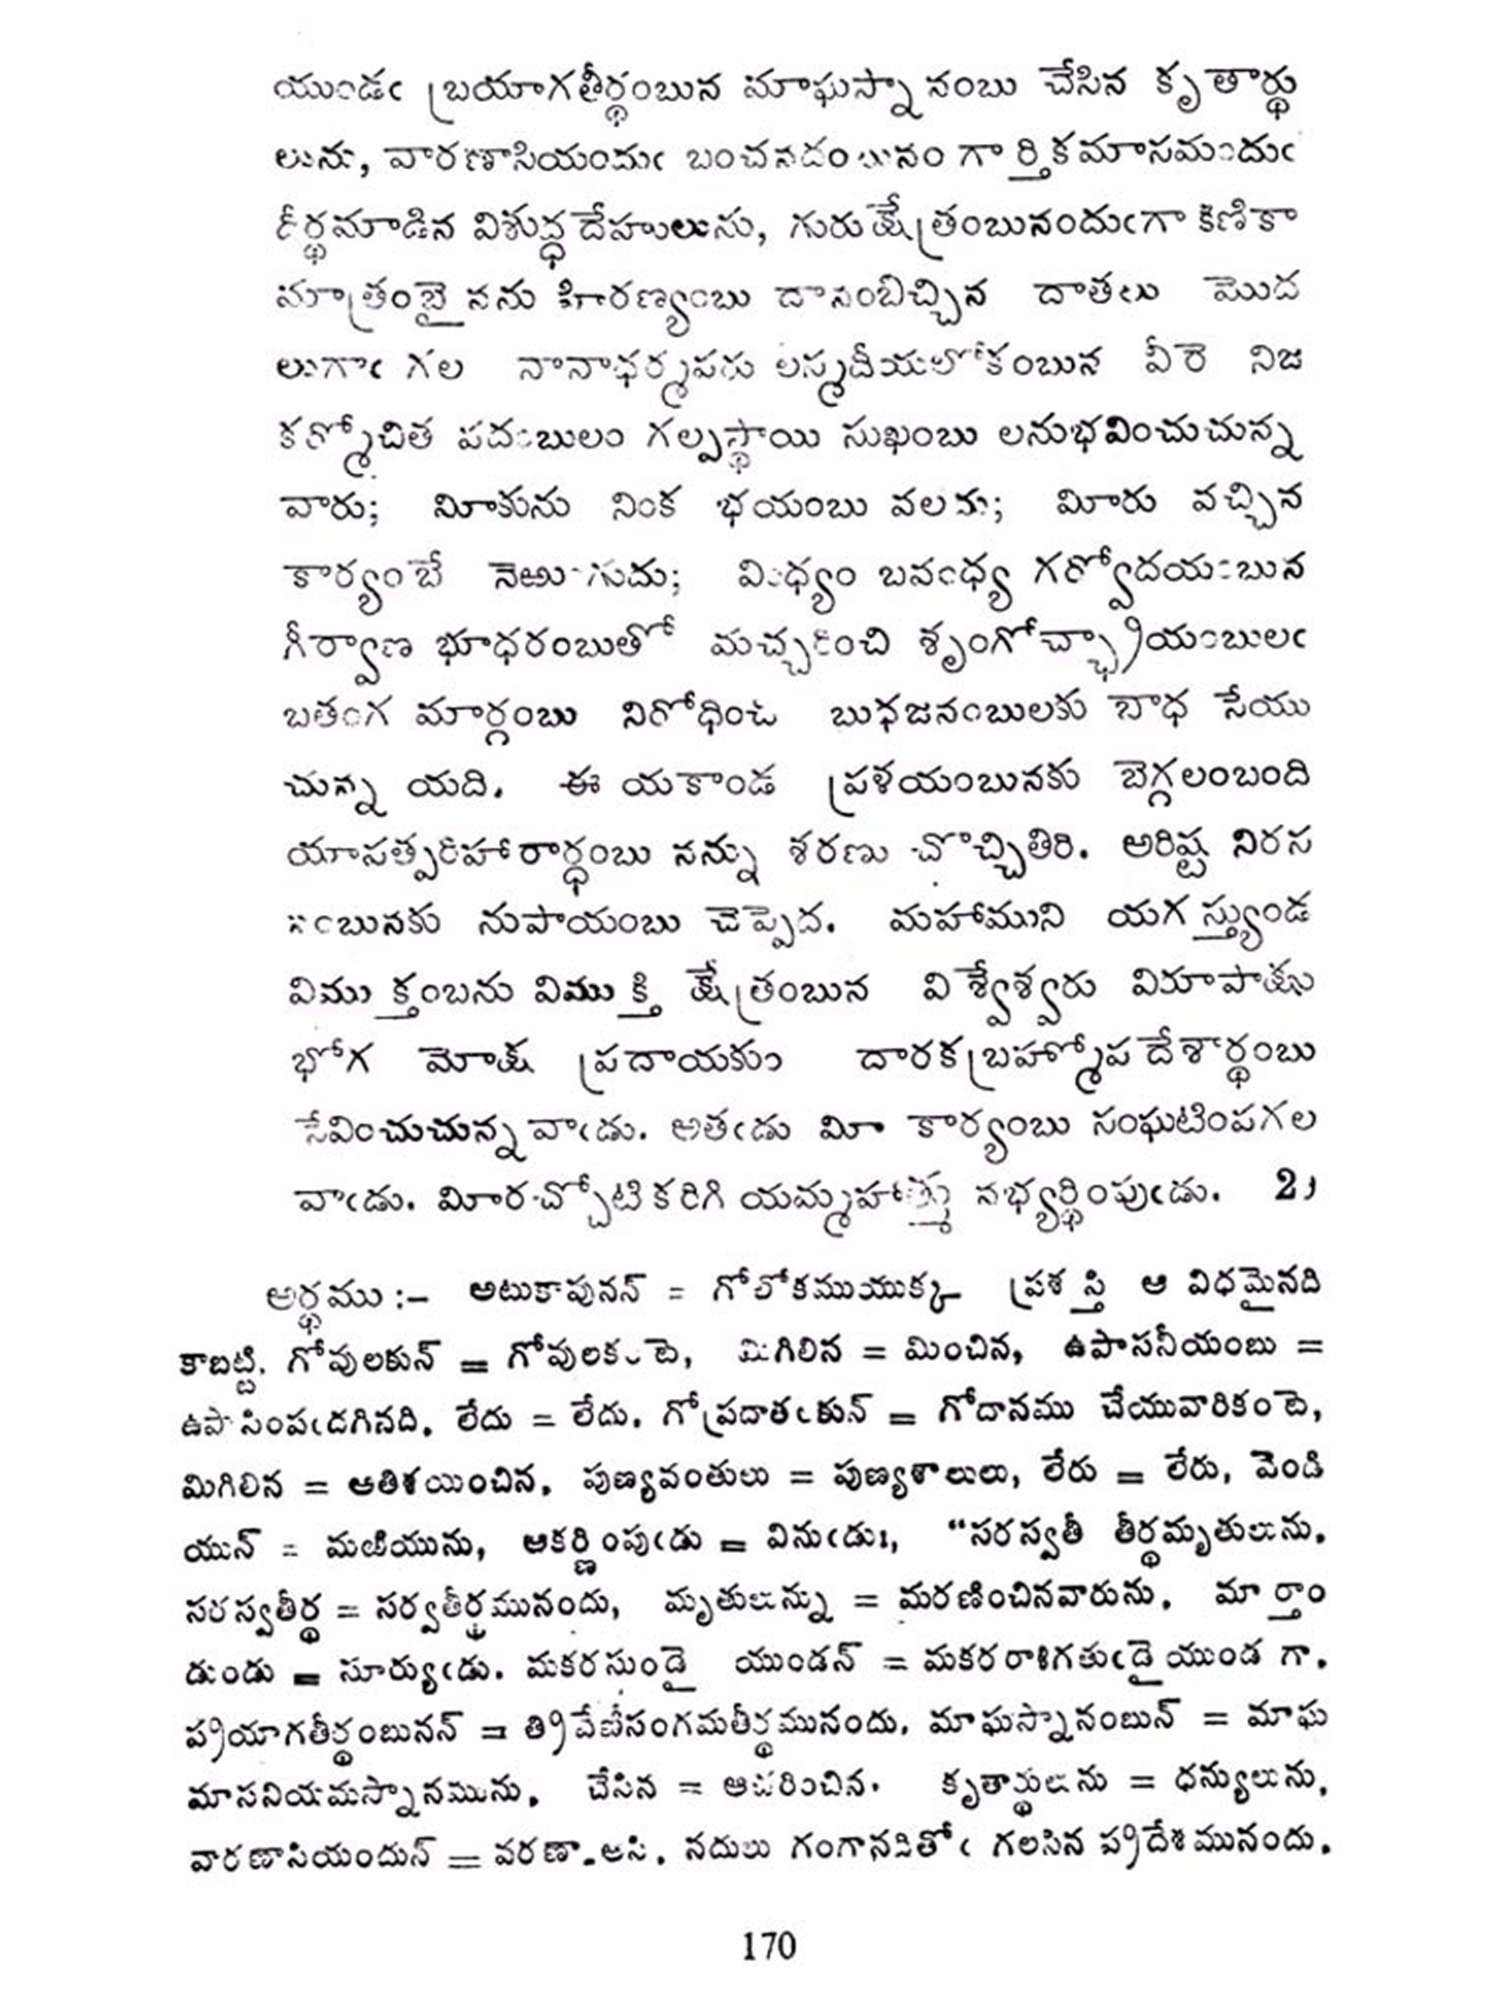 యుండఁ బ్రయాగతీర్థంబున మాఘస్నానంబు చేసిన కృతార్థు
లును, వారణాసియందుఁ బంచనదంబునం గార్తికమాసమందుఁ
దీర్థమాడిన విశుద్ధదేహులును, గురుక్షేత్రంబునందుఁగాకిణికా
మాత్రంబైనను హిరణ్యంబు దానంబిచ్చిన దాతలు మొద
లుగాఁ గల నానాధర్మపరు లస్మదీయలోకంబున వీరె నిజ
కర్మోచిత పదంబులం గల్పస్థాయి సుఖంబు లనుభవించుచున్న
వారు; మీకును నింక భయంబు వలదు; మీరు వచ్చిన
కార్యంబే నెఱుఁగుదు; వింధ్యం బవంధ్య గర్వోదయంబున
గీర్వాణ భూధరంబుతో మచ్చరించి శృంగోచ్ఛ్రాయంబులఁ
బతంగ మార్గంబు నిరోధించి బుధజనంబులకు బాధ సేయు
చున్న యది. ఈ యకాండ ప్రళయంబునకు బెగ్గలంబంది
యాసత్పరిహారార్థంబు నన్ను శరణు చొచ్చితిరి. అరిష్ట నిరస
నంబునకు నుపాయంబు చెప్పెద. మహాముని యగస్త్యుండ
విముక్తంబను విముక్తి క్షేత్రంబున విశ్వేశ్వరు విరూపాక్షు
భోగ మోక్ష ప్రదాయకుం దారకబ్రహ్మోపదేశార్థంబు
సేవించుచున్నవాఁడు. అతఁడు మీ కార్యంబు సంఘటింపగల
వాఁడు. మీరచ్చోటికరిగి యమ్మహాత్ము నభ్యర్థింపుఁడు. 2)
అర్థము :– అటుకావునన్ = గోలోకముయుక్క ప్రశస్తి ఆ విధమైనది
కాబట్టి, గోవులకున్ = గోవులకంటె, మిగిలిన = మించిన, ఉపాసనీయంబు =
ఉపాసింపఁదగినది, లేదు = లేదు. గోప్రదాతలకున్ = గోదానము చేయువారికంటె,
మిగిలిన = అతిశయించిన, పుణ్యవంతులు = పుణ్యశాలులు, లేరు = లేరు, వెండి
యున్ = మఱియును, ఆకర్ణింపుఁడు = వినుఁడు, “సరస్వతీ తీర్థమృతులును,
సరస్వతీర్థ = సర్వతీర్థమునందు, మృతులున్ను = మరణించినవారును. మార్తాం
డుండు = సూర్యుఁడు. మకరసుండై యుండన్ = మకరరాశిగతుఁడై యుండ గా.
ప్రయాగతీర్థంబునన్ = త్రివేణీసంగమతీర్థమునందు. మాఘస్నానంబున్ = మాఘ
మాసనియమస్నానమును. చేసిన = ఆచరించిన. కృతార్థులును = ధన్యులును,
వారణాసియందున్ = వరణా-అసి. నదులు గంగానదితోఁ గలసిన ప్రదేశమునందు.
170